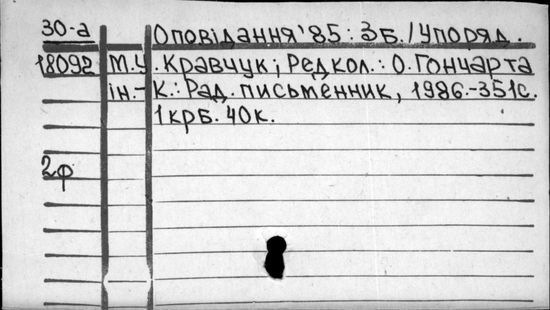 30-а Оповідання'85: Зб./Упоряд.
18092 М.У. Кравчук; Редкол.: О.Гончар та
ін.- К.: Рад. письменник, 1986.-351с.
1крб. 40к.
2ф